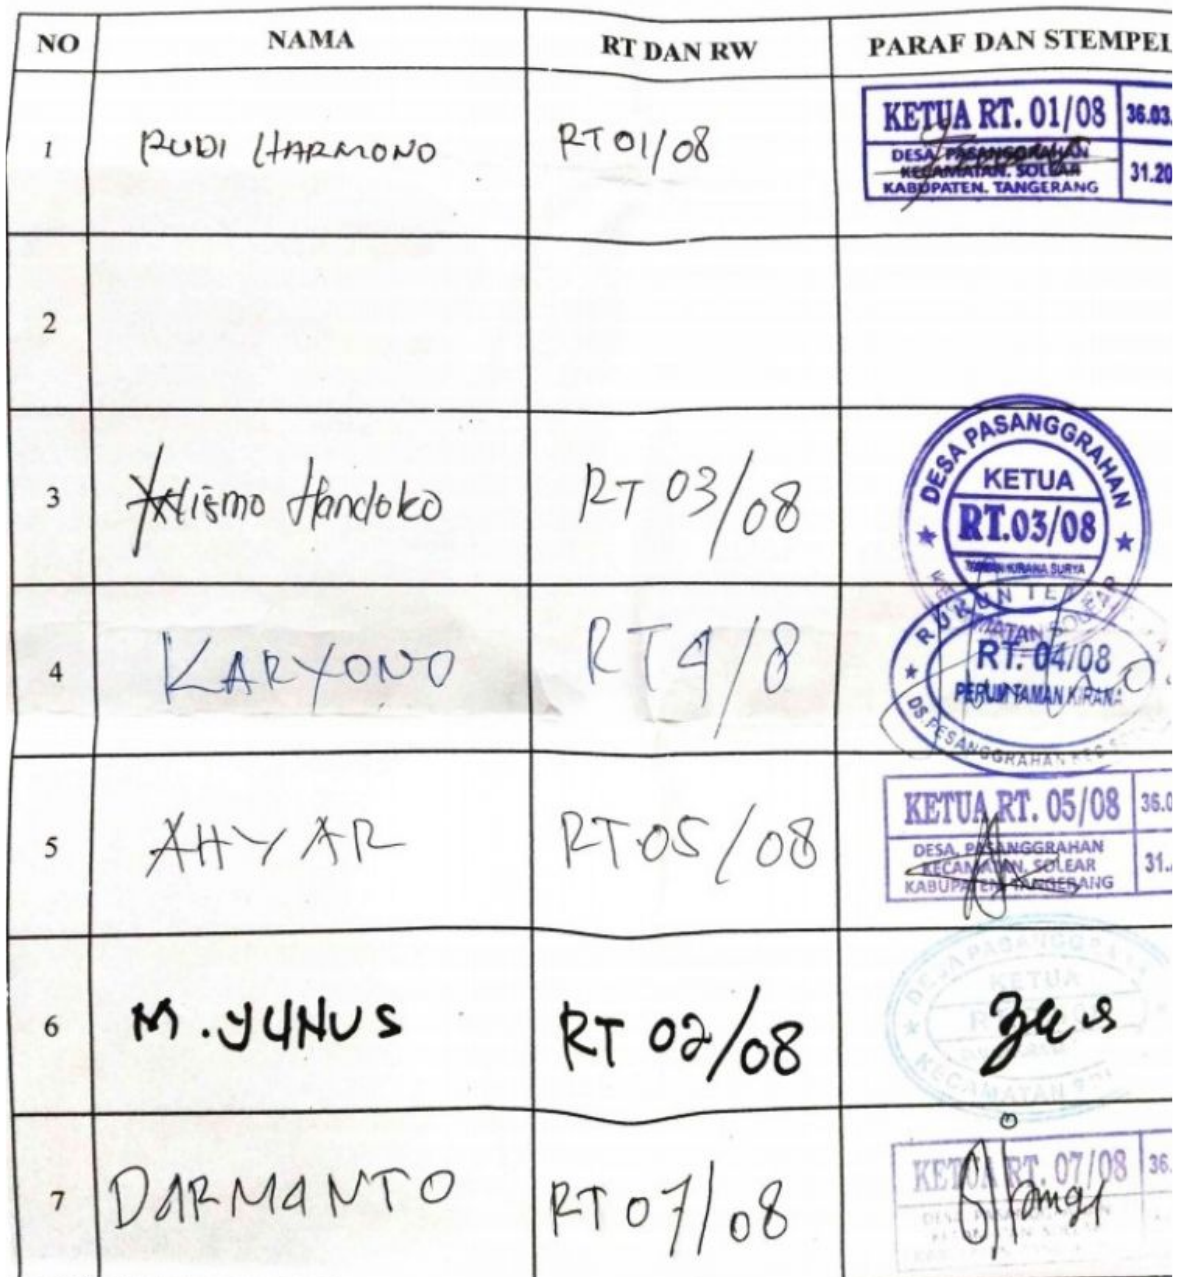 NO NAMA RT DAN RW PARAF DAN STEMPEL
1 RUDI HARMONO RT 01/08
KETUA RT. 01/08 36.03.
DESA. PASANGGRAHAN
KECAMATAN. SOLEAR 31.20
KABUPATEN. TANGERANG
2
3 Handoko RT 03/08
DESA PASANGGRAHAN
KETUA
RT.03/08
KIRANA SURYA
4 KARYONO RT 4/8
RUKUN TE
RT. 04/08
PERUM TAMAN KIRANA
DS PESANGGRAHAN KEC
5 AHYAR RT 05/08
KETUA RT. 05/08 36.0
DESA. PASANGGRAHAN
KECAMATAN. SOLEAR 31.
KABUPATEN. TANGERANG
6 M. YUNUS RT 02/08
DESA PASANGGRA
KETUA
KECAMATAN
7 DARMANTO RT 07/08
KETUA RT. 07/08 36.